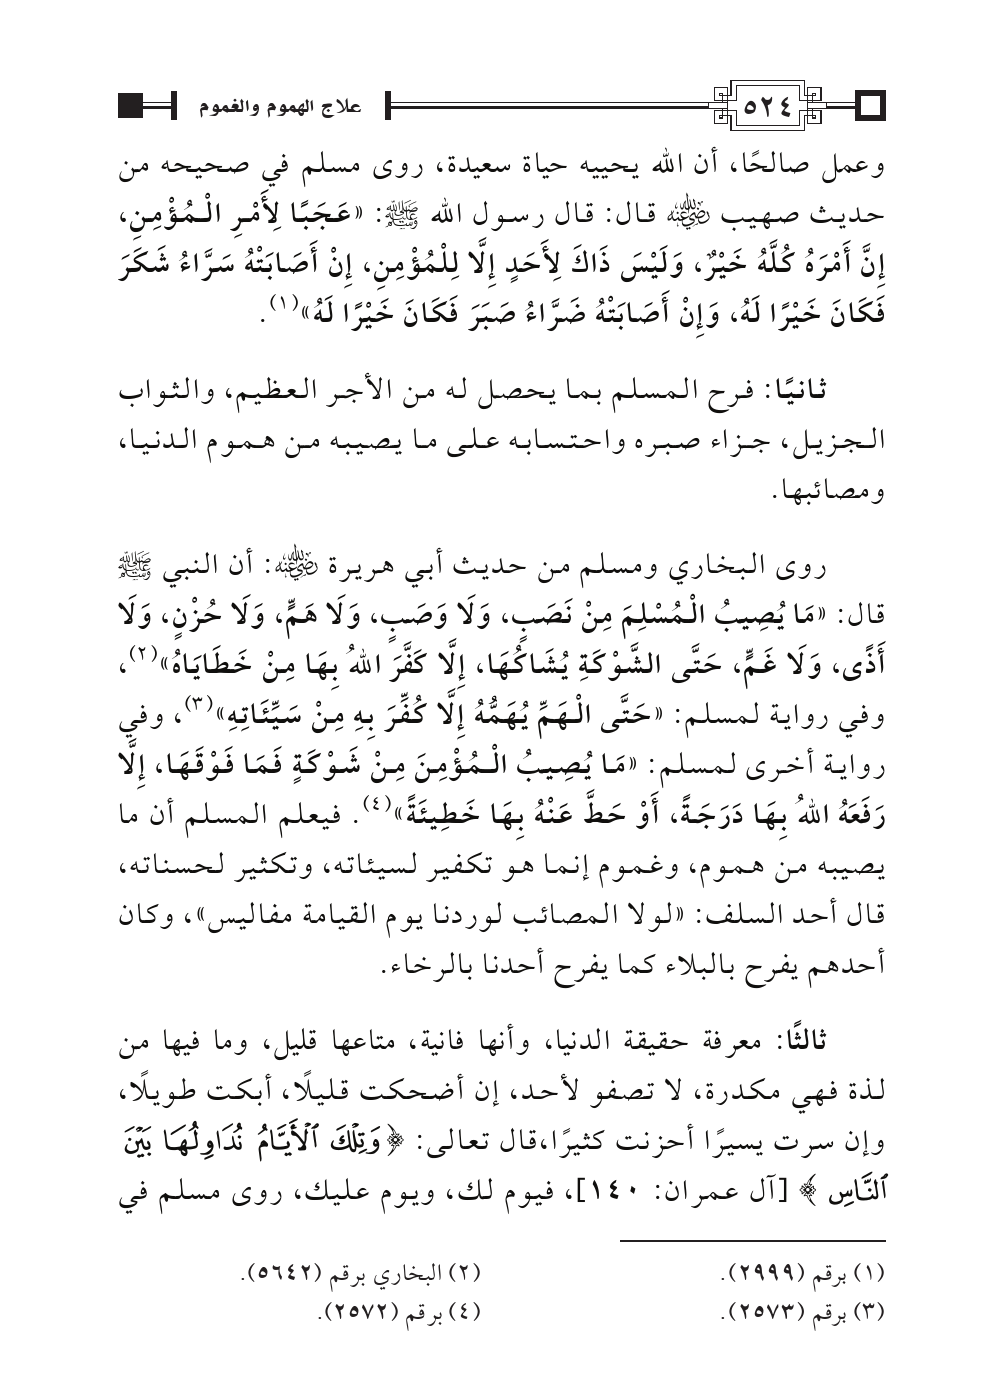 ٥٢٤
علاج الهموم والغموم
وعمل صالحًا، أن الله يحييه حياة سعيدة، روى مسلم في صحيحه من
حديث صهيب رضي الله عنه قال: قال رسول الله ﷺ: «عَجَبًا لِأَمْرِ الْمُؤْمِنِ،
إِنَّ أَمْرَهُ كُلَّهُ خَيْرٌ، وَلَيْسَ ذَاكَ لِأَحَدٍ إِلَّا لِلْمُؤْمِنِ، إِنْ أَصَابَتْهُ سَرَّاءُ شَكَرَ
فَكَانَ خَيْرًا لَهُ، وَإِنْ أَصَابَتْهُ ضَرَّاءُ صَبَرَ فَكَانَ خَيْرًا لَهُ»(١).
ثانيًا: فرح المسلم بما يحصل له من الأجر العظيم، والثواب
الجزيل، جزاء صبره واحتسابه على ما يصيبه من هموم الدنيا،
ومصائبها.
روى البخاري ومسلم من حديث أبي هريرة رضي الله عنه: أن النبي ﷺ
قال: «مَا يُصِيبُ الْمُسْلِمَ مِنْ نَصَبٍ، وَلَا وَصَبٍ، وَلَا هَمٍّ، وَلَا حُزْنٍ، وَلَا
أَذًى، وَلَا غَمٍّ، حَتَّى الشَّوْكَةِ يُشَاكُهَا، إِلَّا كَفَّرَ اللهُ بِهَا مِنْ خَطَايَاهُ»(٢)،
وفي رواية لمسلم: «حَتَّى الْهَمِّ يُهَمُّهُ إِلَّا كُفِّرَ بِهِ مِنْ سَيِّئَاتِهِ»(٣)، وفي
رواية أخرى لمسلم: «مَا يُصِيبُ الْمُؤْمِنَ مِنْ شَوْكَةٍ فَمَا فَوْقَهَا، إِلَّا
رَفَعَهُ اللهُ بِهَا دَرَجَةً، أَوْ حَطَّ عَنْهُ بِهَا خَطِيئَةً»(٤). فيعلم المسلم أن ما
يصيبه من هموم، وغموم إنما هو تكفير لسيئاته، وتكثير لحسناته،
قال أحد السلف: «لولا المصائب لوردنا يوم القيامة مفاليس»، وكان
أحدهم يفرح بالبلاء كما يفرح أحدنا بالرخاء.
ثالثًا: معرفة حقيقة الدنيا، وأنها فانية، متاعها قليل، وما فيها من
لذة فهي مكدرة، لا تصفو لأحد، إن أضحكت قليلًا، أبكت طويلًا،
وإن سرت يسيرًا أحزنت كثيرًا،قال تعالى: ﴿وَتِلْكَ ٱلْأَيَّامُ نُدَاوِلُهَا بَيْنَ
ٱلنَّاسِ﴾ [آل عمران: ١٤٠]، فيوم لك، ويوم عليك، روى مسلم في
(١) برقم (٢٩٩٩).
(٢) البخاري برقم (٥٦٤٢).
(٣) برقم (٢٥٧٣).
(٤) برقم (٢٥٧٢).